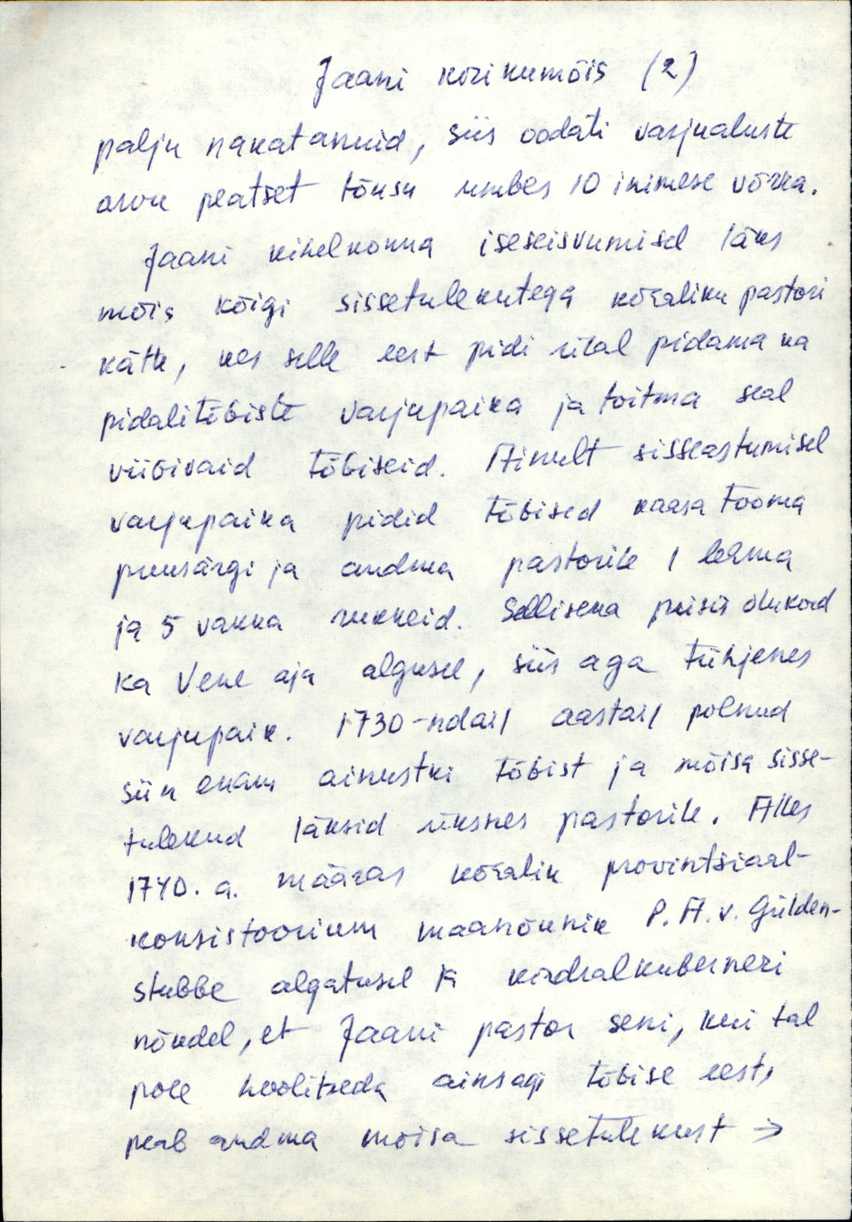 Jaani kirikumõis (2)
palju nakatanuid, siis oodati varjualuste
arvu peatset tõusu umbes 10 inimese võrra.
Jaani kihelkonna iseseisvumisel läks
mõis kõigi sissetulekutega kohaliku pastori
kätte, kes selle eest pidi ülal pidama ka
pidalitõbiste varjupaika ja toitma seal
viibivaid tõbiseid. Ainult sisseastumisel
varjupaika pidid tõbised kaasa tooma
puusärgi ja andma pastorile 1 lehma
ja 5 vakka rukkeid. Sellisena püsis olukord
ka Vene aja algusel, siis aga tühjenes
varjupaik. 1730-ndail aastail polnud
siin enam ainustki tõbist ja mõisa sisse-
tulekud läksid üksnes pastorile. Alles
1740. a. määras kohalik provintsiaal-
konsistoorium maanõunik P. A. v. Gülden-
stubbe algatusel ja kindralkuberneri
nõudel, et Jaani pastor seni, kui tal
pole hoolitseda ainsagi tõbise eest,
peab andma mõisa sissetulekust →